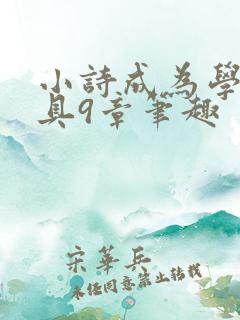 小詩成為學
具9章筆趣
宋華兵
未經同意禁止轉載